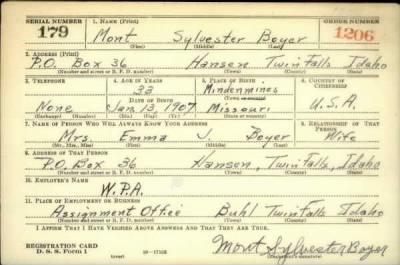 SERIAL NUMBER 1. NAME (Print) ORDER NUMBER
179 Mont Sylvester Boyer 1206
(First) (Middle) (Last)
2. ADDRESS (Print)
P.O. Box 36 Hansen Twin Falls Idaho
(Number and street or R. F. D. number) (Town) (County) (State)
3. TELEPHONE 4. AGE IN YEARS 5. PLACE OF BIRTH 6. COUNTRY OF CITIZENSHIP
33 Mindenmines
DATE OF BIRTH (Town or county)
None Jan. 13, 1907 Missouri U.S.A.
(Exchange) (Number) (Mo.) (Day) (Yr.) (State or country)
7. NAME OF PERSON WHO WILL ALWAYS KNOW YOUR ADDRESS 8. RELATIONSHIP OF THAT PERSON
Mrs. Emma J. Boyer Wife
(Mr., Mrs., Miss) (First) (Middle) (Last)
9. ADDRESS OF THAT PERSON
P.O. Box 36 Hansen, Twin Falls, Idaho
(Number and street or R. F. D. number) (Town) (County) (State)
10. EMPLOYER'S NAME
W.P.A.
11. PLACE OF EMPLOYMENT OR BUSINESS
Assignment Office Buhl Twin Falls Idaho
(Number and street or R. F. D. number) (Town) (County) (State)
I AFFIRM THAT I HAVE VERIFIED ABOVE ANSWERS AND THAT THEY ARE TRUE.
REGISTRATION CARD
D. S. S. Form 1 (over) Mont Sylvester Boyer